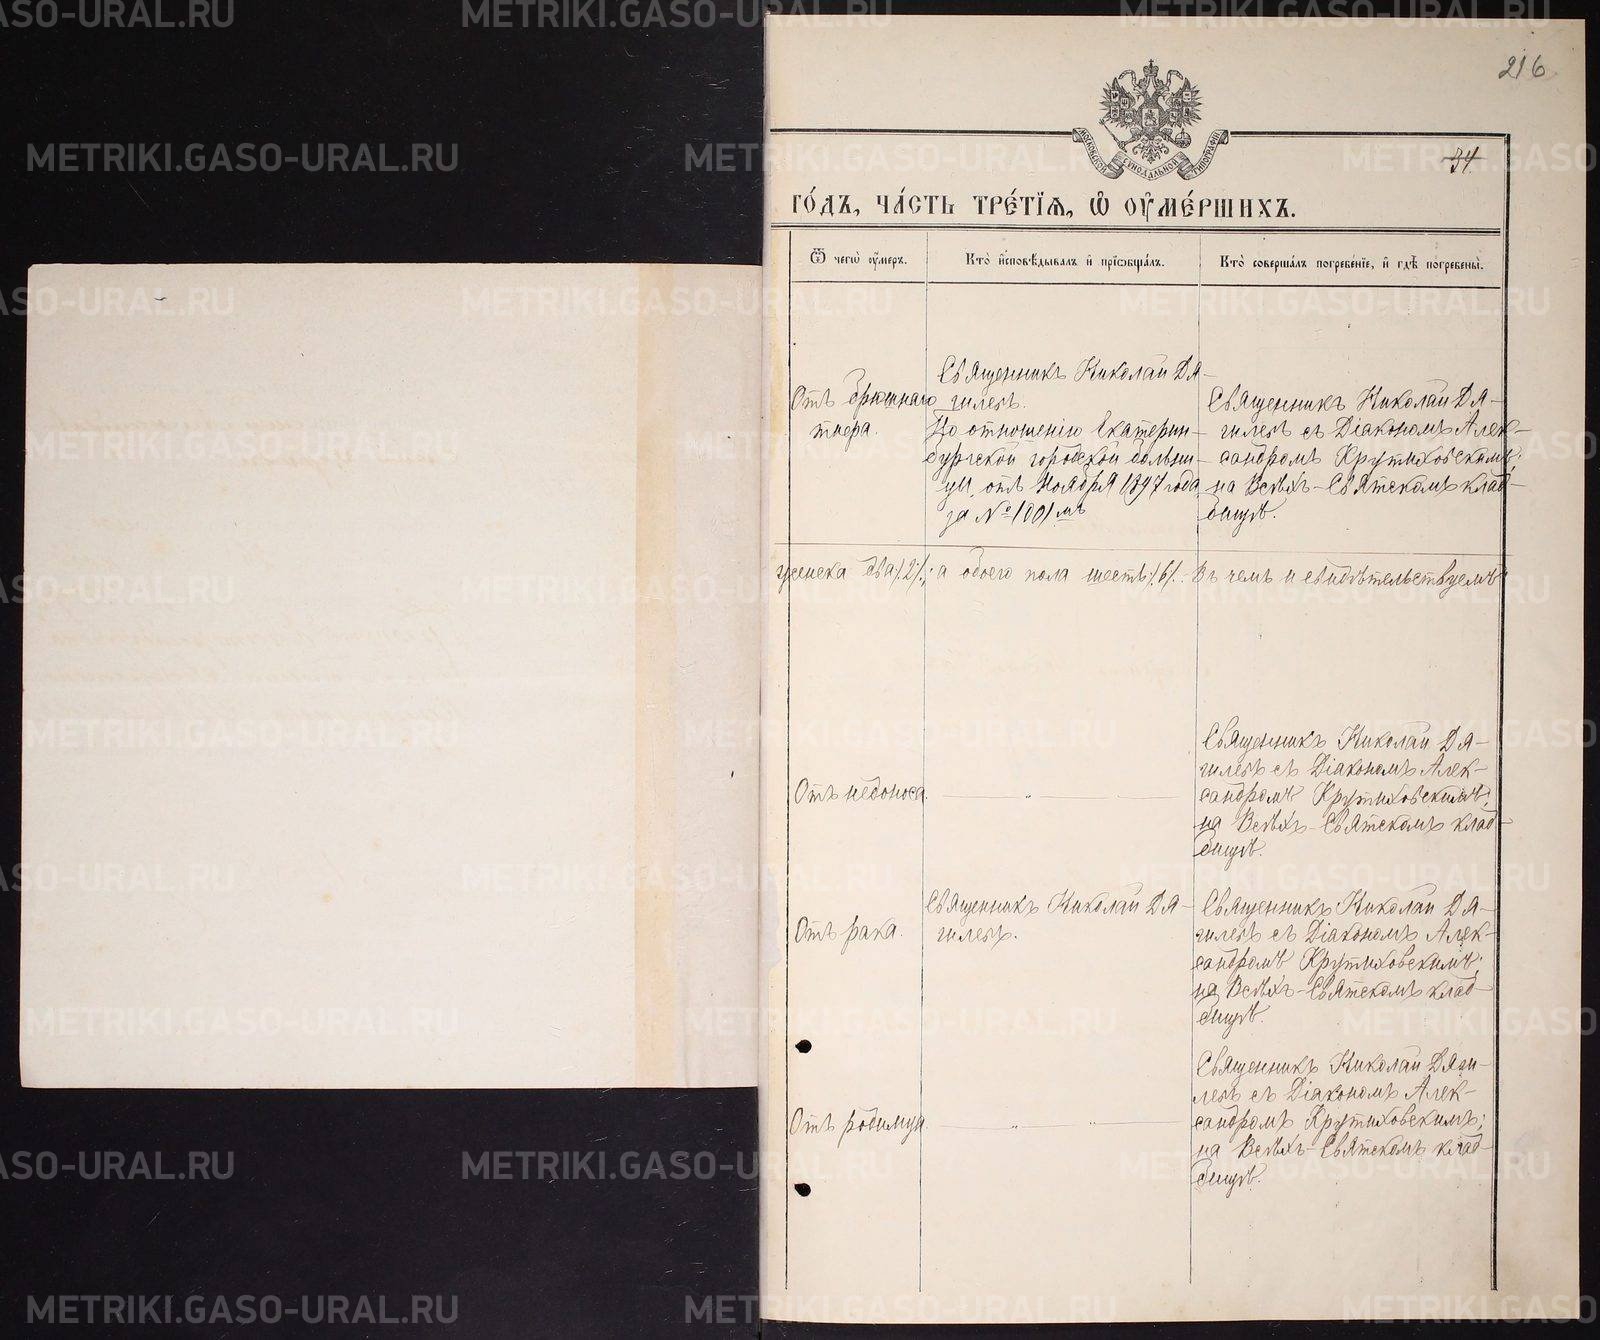 216
34
МОСКОВСКОЙ СѴНОДАЛЬНОЙ ТИПОГРАФІИ
ГО́ДЪ, ЧА́СТЬ ТРЕ́ТЇѦ, Ѽ ОУ҆МЕ́РШИХЪ.
Ѿ чегѡ̀ оу҆́меръ.
Кто̀ и҆сповѣ́дывалъ и҆ прїѡбща́лъ.
Кто̀ соверша́лъ погребе́нїе, и҆ гдѣ̀ погребены̀.
Отъ брюшнаго
тифа.
Священникъ Николай Дя-
гилевъ.
По отношенію Екатерин-
бургской городской больни-
цы, отъ Ноября 1897 года
за № 1001мъ
Священникъ Николай Дя-
гилевъ съ Діакономъ Алек-
сандромъ Крутиховскимъ;
на Всѣхъ-Святскомъ клад-
бищѣ.
женска два /2/; а обоего пола шесть /6/. Въ чемъ и свидѣтельствуемъ
Отъ недоноса.
Священникъ Николай Дя-
гилевъ съ Діакономъ Алек-
сандромъ Крутиховскимъ;
на Всѣхъ-Святскомъ клад-
бищѣ.
Отъ рака.
Священникъ Николай Дя-
гилевъ.
Священникъ Николай Дя-
гилевъ съ Діакономъ Алек-
сандромъ Крутиховскимъ;
на Всѣхъ-Святскомъ клад-
бищѣ.
Отъ родимца.
Священникъ Николай Дяги-
левъ съ Діакономъ Алек-
сандромъ Крутиховскимъ;
на Всѣхъ-Святскомъ клад-
бищѣ.
METRIKI.GASO-URAL.RU